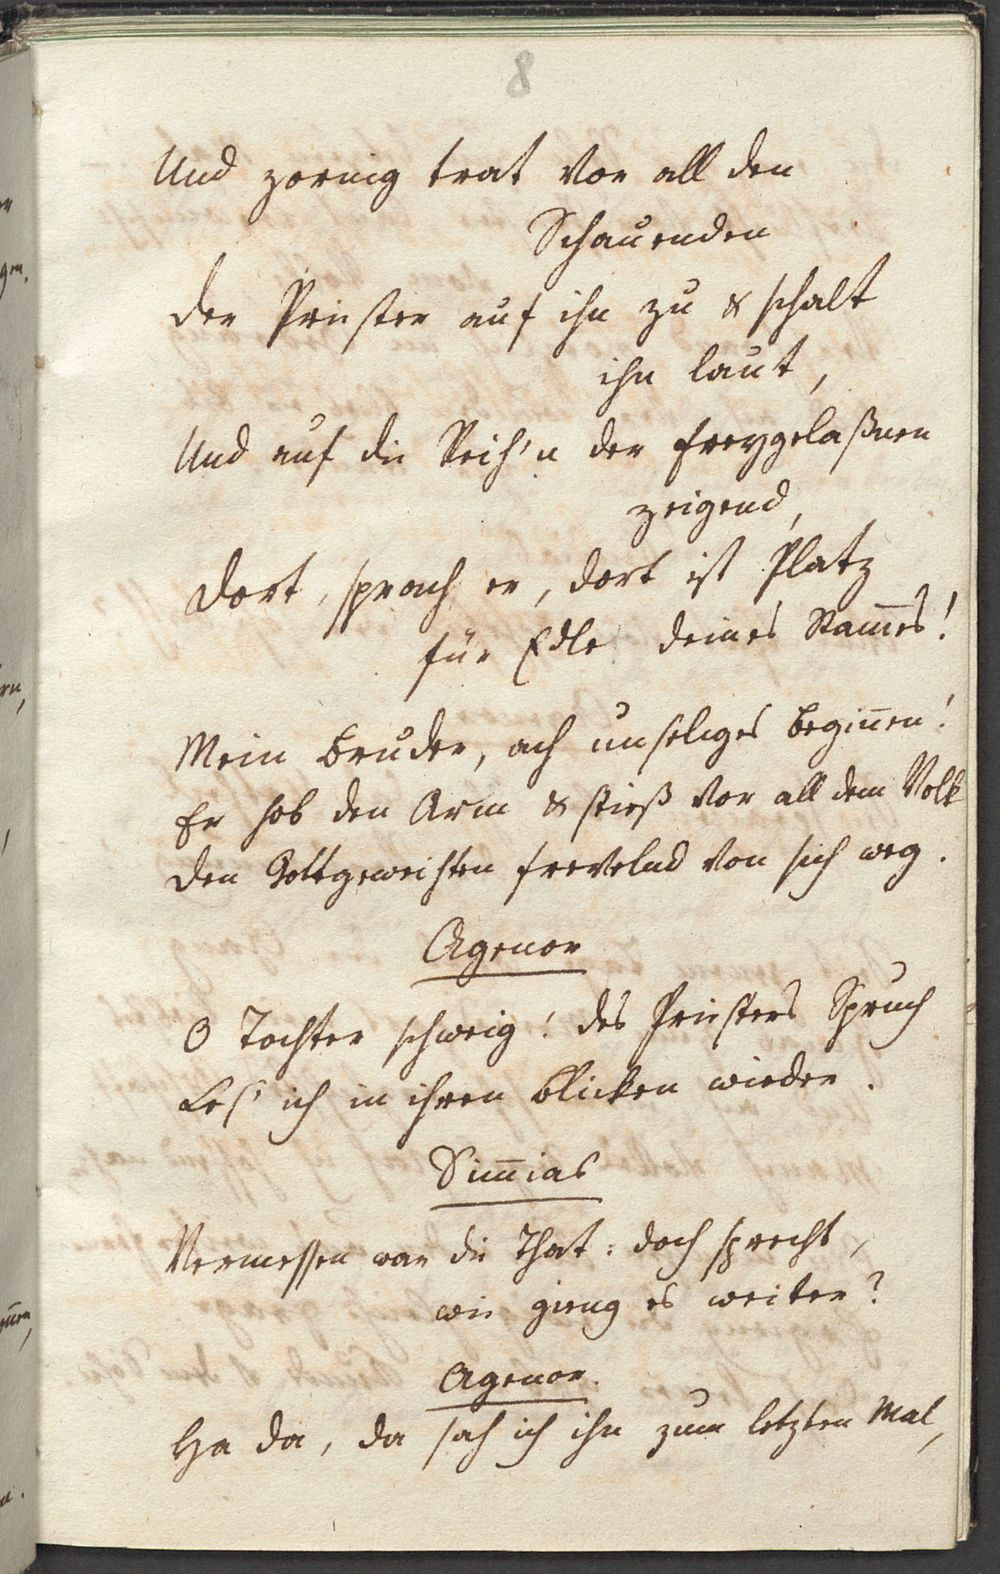 8
Und zornig trat vor all den
Schauenden
der Priester auf ihn zu & schalt
ihn laut,
Und auf die Reih'n der Freygelaßnen
zeigend,
dort, sprach er, dort ist Platz
für Edle deines Stam̄es!
Mein Bruder, ach unseliges Begin̄en!
Er hob den Arm & stieß vor all dem Volk
den Gottgeweihten frevelnd von sich weg.
Agenor
O Tochter schweig! des Priesters Spruch
Les' ich in ihren Blicken wieder.
Sim̄ias
Vermessen war die That: doch sprecht,
wie gieng es weiter?
Agenor.
Ha da, da sah ich ihn zum letzten Mal,